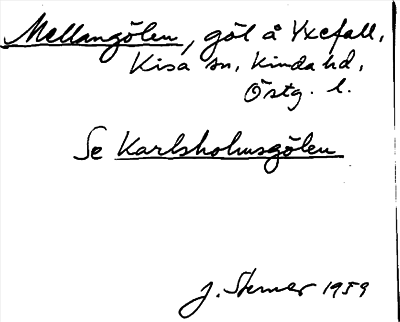 Mellangölen, göl å Yxefall,
Kisa sn, Kinda hd,
Östg. l.
Se Karlsholmsgölen
J. Sterner 1959